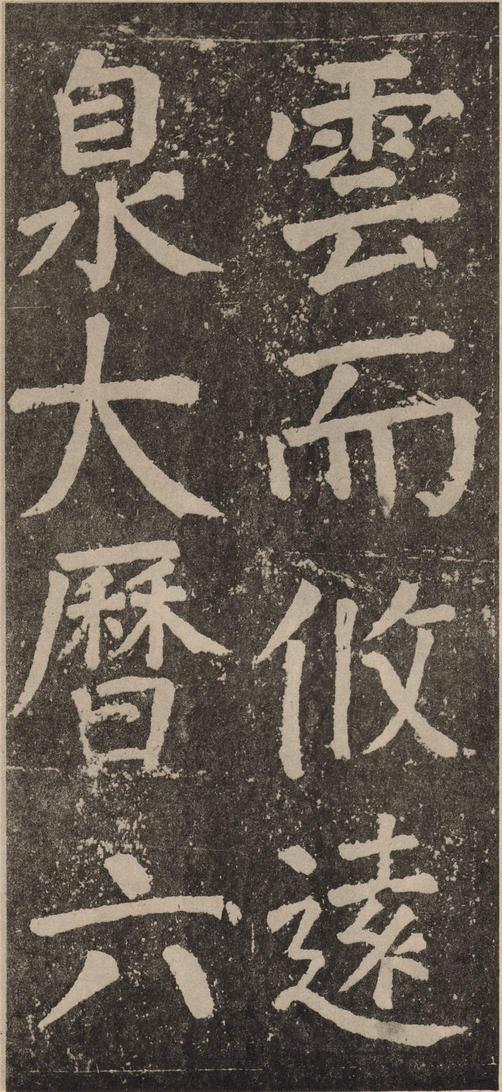 雲而攸遠
泉大曆六